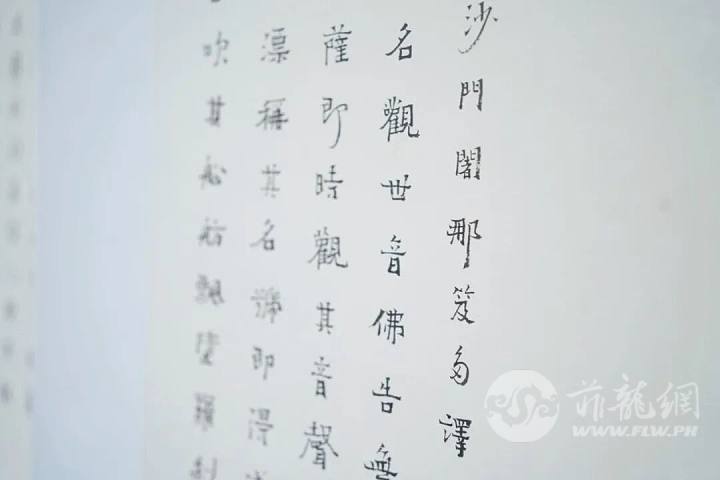 沙門闍那笈多譯
名觀世音佛告無
薩即時觀其音聲
漂稱其名號即得
吹其船舫飄墮羅刹
菲龍網
WWW.FLW.PH